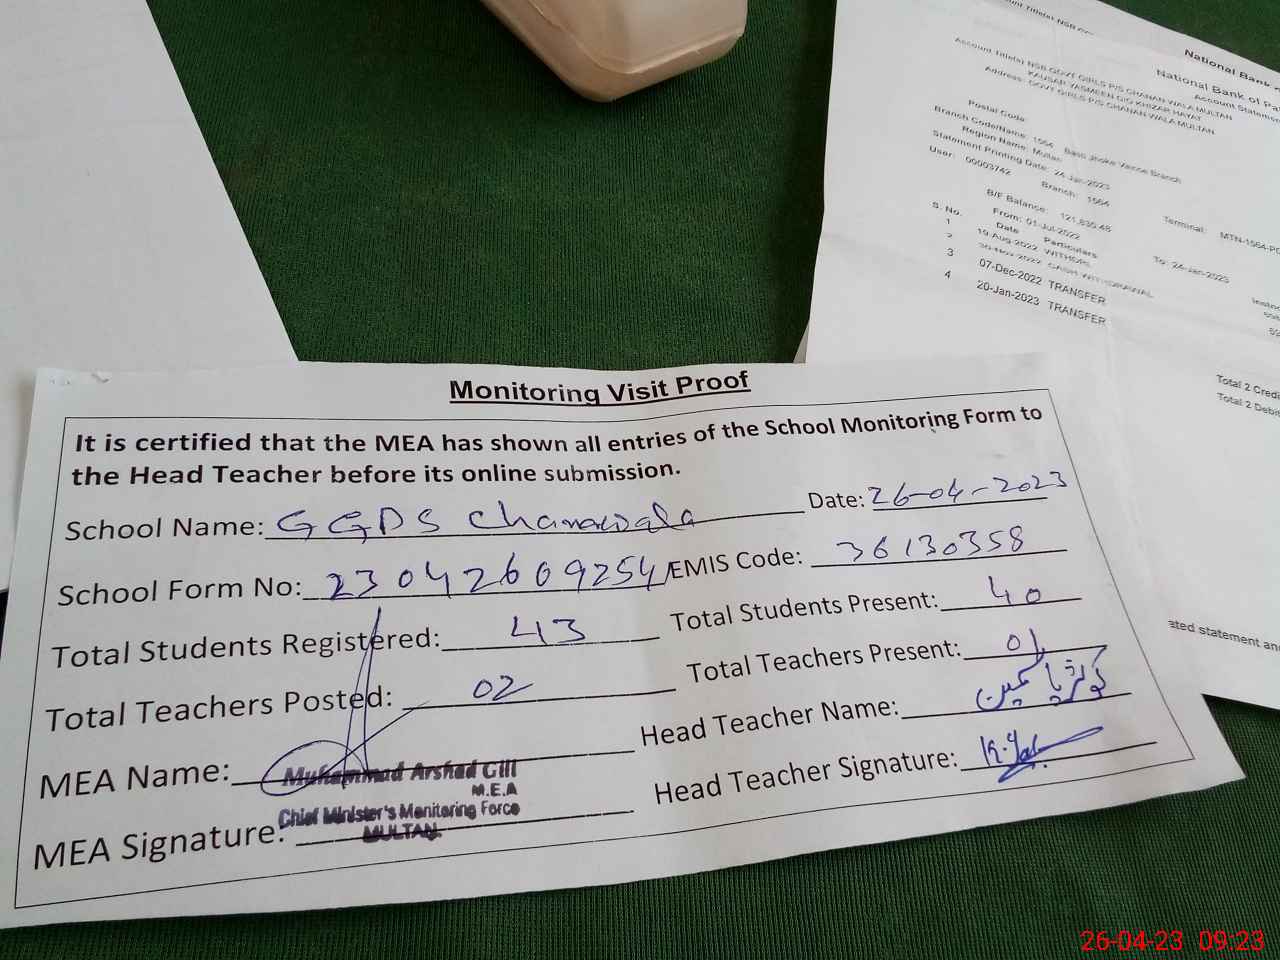 National Bank
National Bank of Pa
Account Statemen
Account Title(s) NSB GOVT GIRLS P/S CHANAN WALA MULTAN
KAUSAR YASMEEN D/O KHIZAR HAYAT
Address: GOVT GIRLS P/S CHANAN WALA MULTAN
Postal Code:
Branch Code/Name: 1564 Basti Jhoke Vance Branch
Region Name: Multan
Statement Printing Date: 24-Jan-2023
User: 00003742 Branch: 1564
Terminal: MTN-1564-PC
B/F Balance: 121,830.48
From: 01-Jul-2022 To: 24-Jan-2023
S. No. Date Particulars
1 19-Aug-2022
2 30-Nov-2022 CASH WITHDRAWAL
3 07-Dec-2022 TRANSFER
4 20-Jan-2023 TRANSFER
Total 2 Credi
Total 2 Debit
ated statement and
Monitoring Visit Proof
It is certified that the MEA has shown all entries of the School Monitoring Form to
the Head Teacher before its online submission.
School Name: GGPS Chanawala Date: 26-04-2023
School Form No: 23042609254 EMIS Code: 36130358
Total Students Registered: 43 Total Students Present: 40
Total Teachers Posted: 02 Total Teachers Present: 01
MEA Name: Muhammad Arshad Gill Head Teacher Name: کوثر یاسمین
M.E.A
Chief Minister's Monitoring Force
MULTAN.
MEA Signature: Head Teacher Signature:
26-04-23 09:23